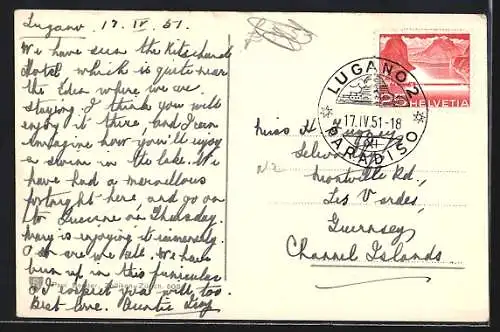 Lugano 17. IV 51.
We have seen the Kitschard
Hotel which is quite near
the Eden where we are
staying. I think you will
enjoy it there, and I can
immagine how you'll enjoy
a swim in the lake. We
have had a marvellous
fortnight here, and go on
to Lucerne on Thursday.
Mary is enjoying it immensely
So are we all. We have
been up in this funicular
& I expect you will too.
Best love. Auntie
LUGANO 2
17.IV.51-18
PARADISO
HELVETIA
Miss H
Rd.,
Les Vardes,
Guernsey
Channel Islands